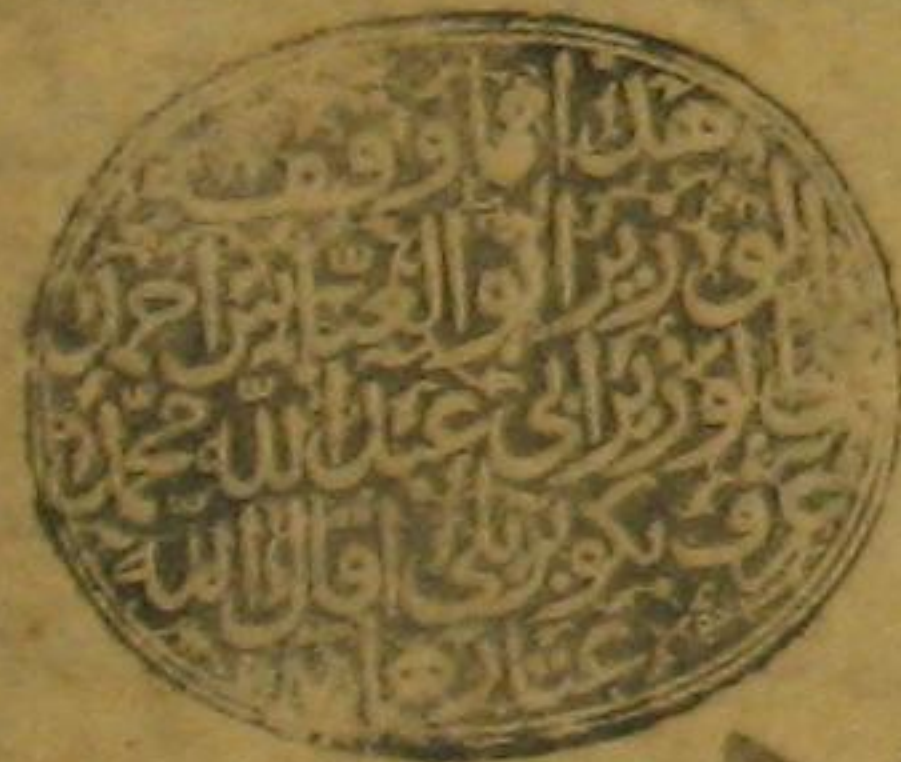 هذا ما وقف
الوزير أبو العباس أحمد بن
الوزير أبي عبد الله محمد
عرف بكوبريلي أقال الله
عثارهما